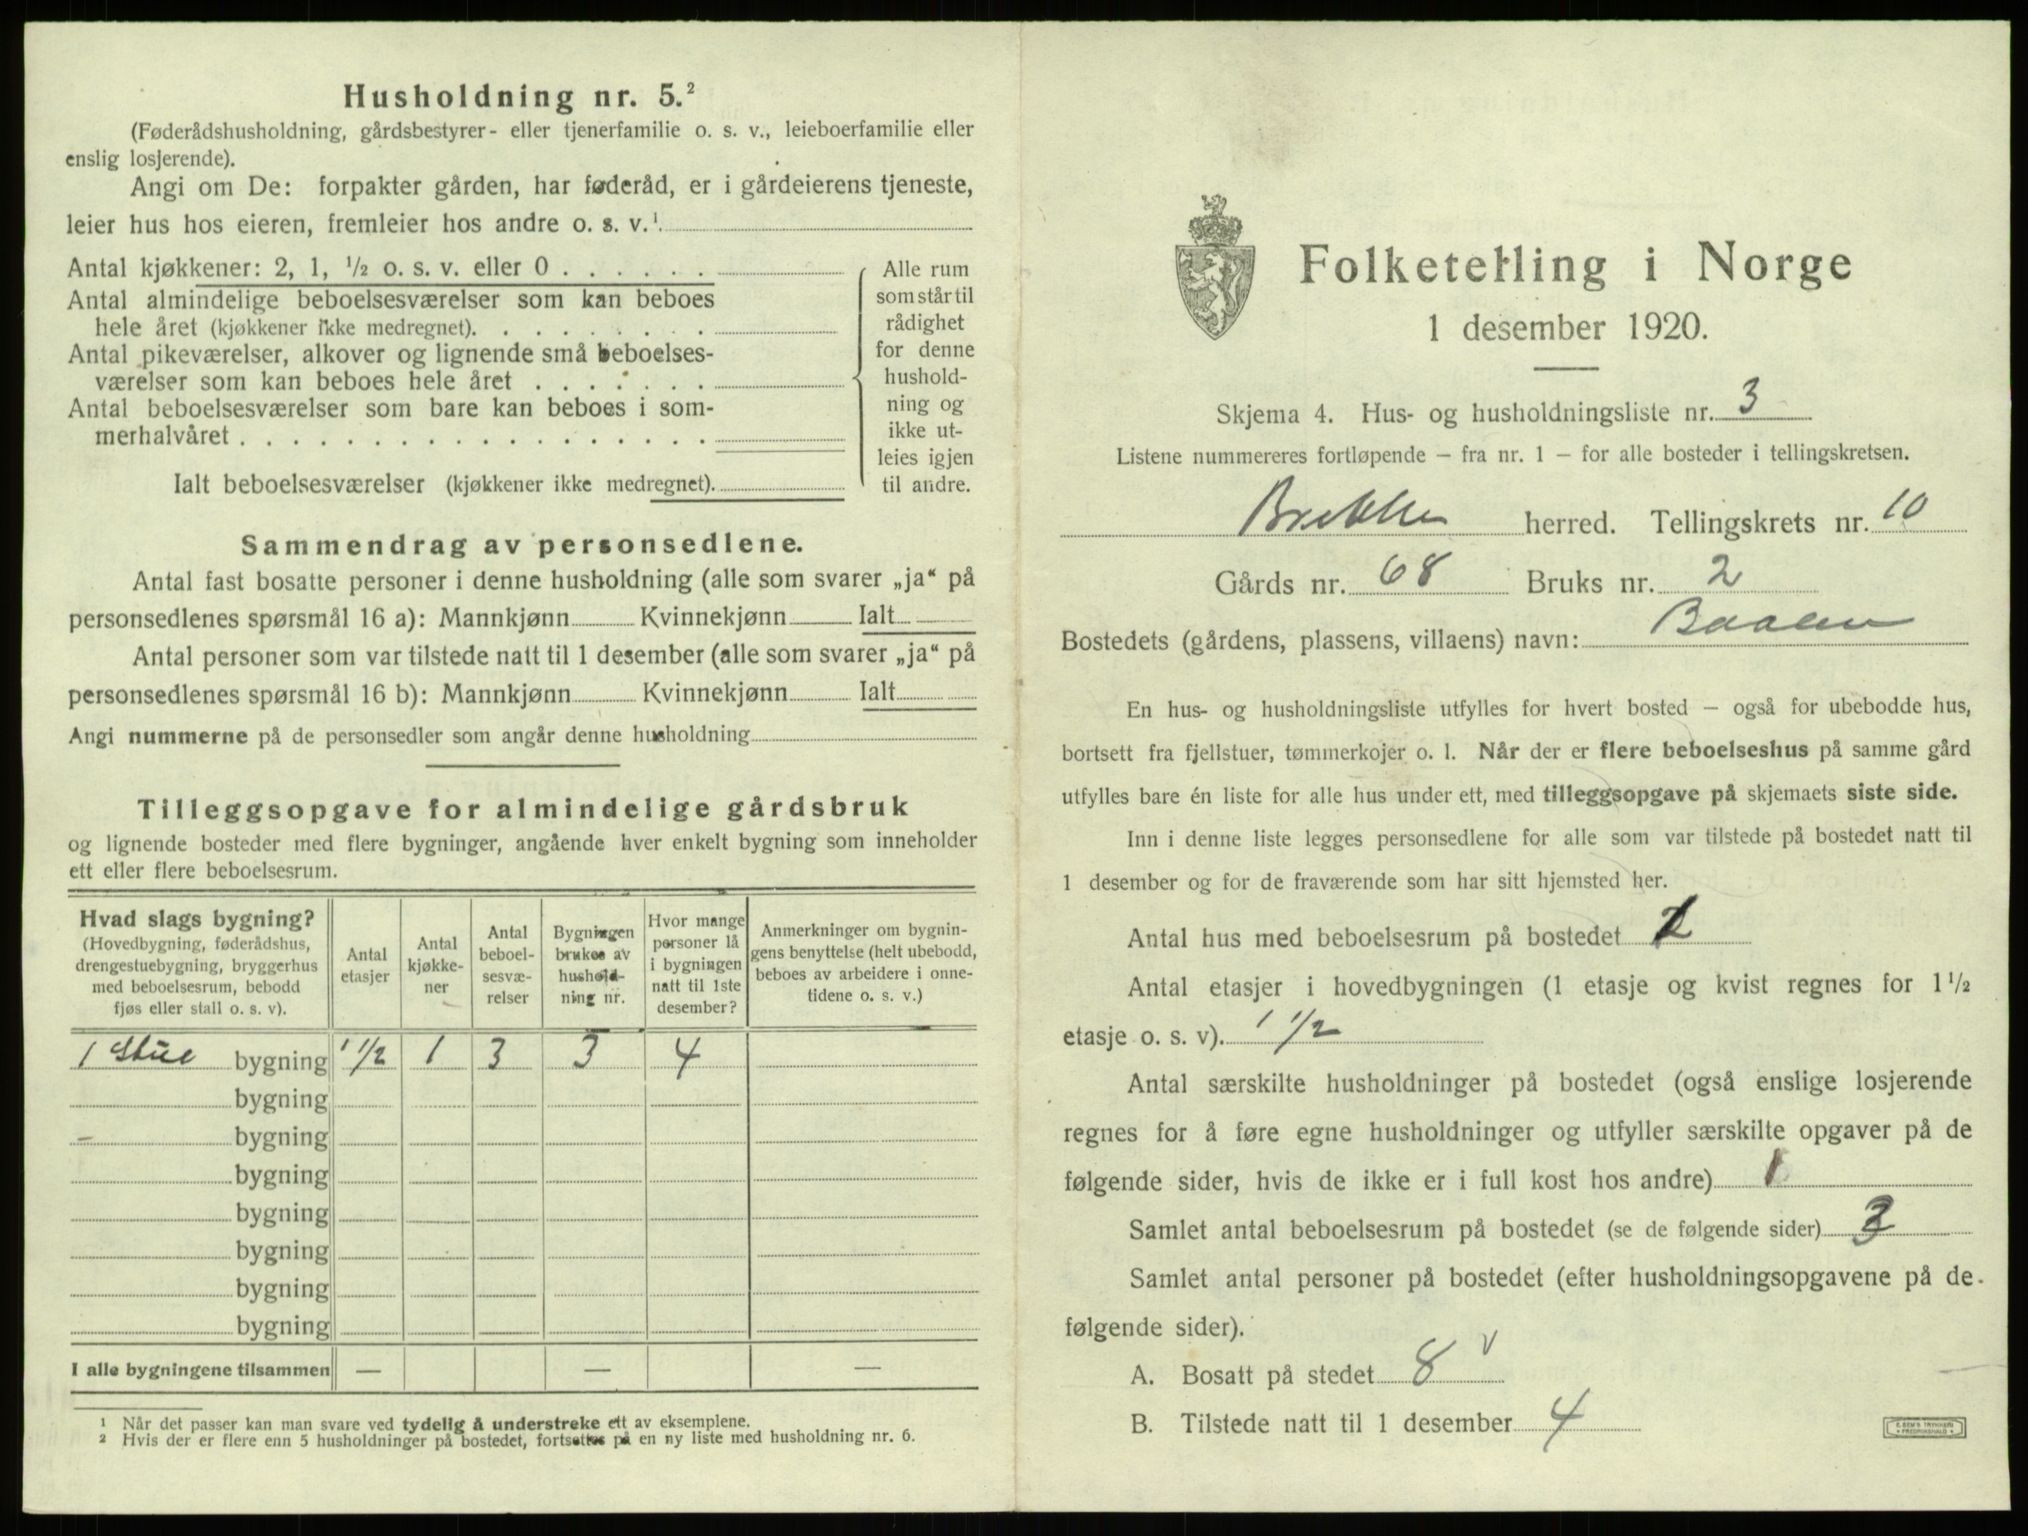 Husholdning nr. 5.²
(Føderådshusholdning, gårdsbestyrer- eller tjenerfamilie o. s. v., leieboerfamilie eller
enslig losjerende).
Angi om De: forpakter gården, har føderåd, er i gårdeierens tjeneste,
leier hus hos eieren, fremleier hos andre o. s. v.¹
Antal kjøkkener: 2, 1, ½ o. s. v. eller 0
Antal almindelige beboelsesværelser som kan beboes
hele året (kjøkkener ikke medregnet).
Antal pikeværelser, alkover og lignende små beboelses-
værelser som kan beboes hele året
Antal beboelsesværelser som bare kan beboes i som-
merhalvåret
Ialt beboelsesværelser (kjøkkener ikke medregnet).
Alle rum
som står til
rådighet
for denne
hushold-
ning og
ikke ut-
leies igjen
til andre.
Sammendrag av personsedlene.
Antal fast bosatte personer i denne husholdning (alle som svarer „ja“ på
personsedlenes spørsmål 16 a): Mannkjønn Kvinnekjønn Ialt
Antal personer som var tilstede natt til 1 desember (alle som svarer „ja“ på
personsedlenes spørsmål 16 b): Mannkjønn Kvinnekjønn Ialt
Angi nummerne på de personsedler som angår denne husholdning
Tilleggsopgave for almindelige gårdsbruk
og lignende bosteder med flere bygninger, angående hver enkelt bygning som inneholder
ett eller flere beboelsesrum.
Hvad slags bygning?
(Hovedbygning, føderådshus,
drengestuebygning, bryggerhus
med beboelsesrum, bebodd
fjøs eller stall o. s. v).
Antal
etasjer
Antal
kjøkke-
ner
Antal
beboel-
sesvæ-
relser
Bygningen
brukes av
hushold-
ning nr.
Hvor mange
personer lå
i bygningen
natt til 1ste
desember?
Anmerkninger om bygnin-
gens benyttelse (helt ubebodd,
beboes av arbeidere i onne-
tidene o. s. v.)
1 Stue bygning 1½ 1 3 3 4
bygning
bygning
bygning
bygning
bygning
bygning
bygning
I alle bygningene tilsammen — — —
¹ Når det passer kan man svare ved tydelig å understreke ett av eksemplene.
² Hvis der er flere enn 5 husholdninger på bostedet, fortsettes på en ny liste med husholdning nr. 6.
Folketelling i Norge
1 desember 1920.
Skjema 4. Hus- og husholdningsliste nr. 3
Listene nummereres fortløpende – fra nr. 1 – for alle bosteder i tellingskretsen.
Brekke herred. Tellingskrets nr. 10
Gårds nr. 68 Bruks nr. 2
Bostedets (gårdens, plassens, villaens) navn: Baalen
En hus- og husholdningsliste utfylles for hvert bosted – også for ubebodde hus,
bortsett fra fjellstuer, tømmerkojer o. l. Når der er flere beboelseshus på samme gård
utfylles bare én liste for alle hus under ett, med tilleggsopgave på skjemaets siste side.
Inn i denne liste legges personsedlene for alle som var tilstede på bostedet natt til
1 desember og for de fraværende som har sitt hjemsted her.
Antal hus med beboelsesrum på bostedet
Antal etasjer i hovedbygningen (1 etasje og kvist regnes for 1½
etasje o. s. v). 1½
Antal særskilte husholdninger på bostedet (også enslige losjerende
regnes for å føre egne husholdninger og utfyller særskilte opgaver på de
følgende sider, hvis de ikke er i full kost hos andre) 1
Samlet antal beboelsesrum på bostedet (se de følgende sider) 3
Samlet antal personer på bostedet (efter husholdningsopgavene på de
følgende sider).
A. Bosatt på stedet 8 v
B. Tilstede natt til 1 desember 4
E. SEM'S TRYKKERI
FREDRIKSHALD